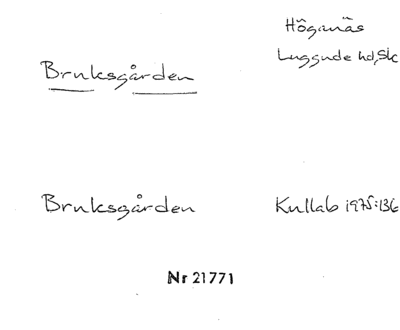 Höganäs
Bruksgården
Luggude hd, Sk
Bruksgården
Kullab 1975:136
Nr 21771